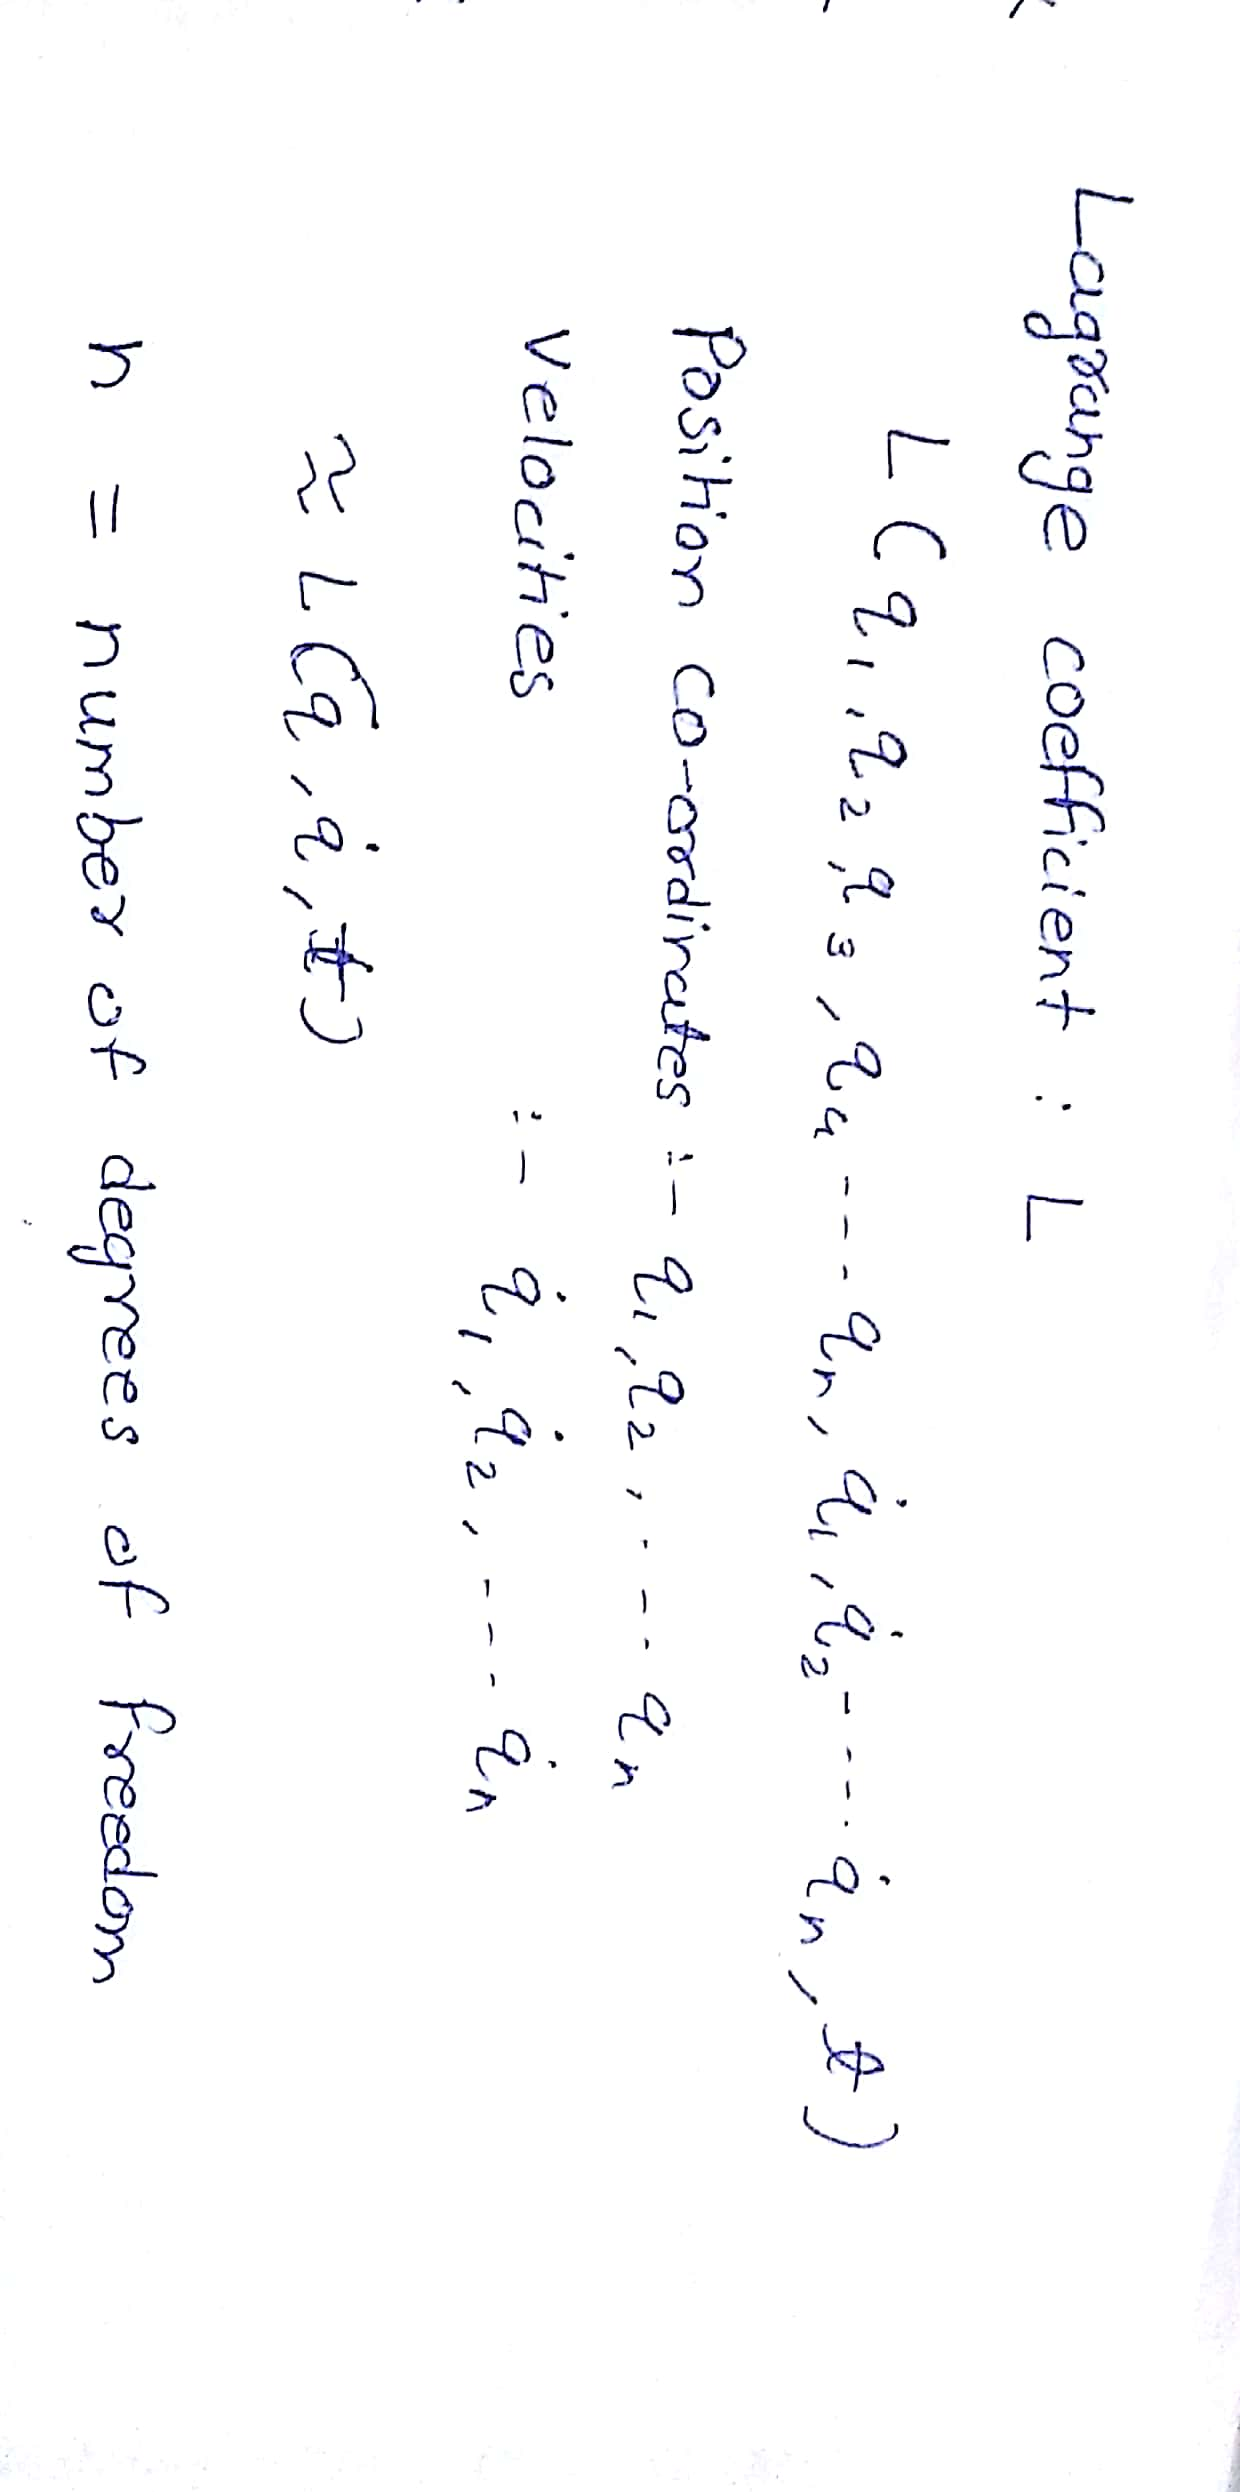 Lagrange coefficient : L
L (q1, q2, q3, q4 ---- qn, q̇1, q̇2 ----- q̇n, t)
Position co-ordinates :- q1, q2, ---- qn
velocities :- q̇1, q̇2, ---- q̇n
≈ L (q, q̇, t)
n = number of degrees of freedom